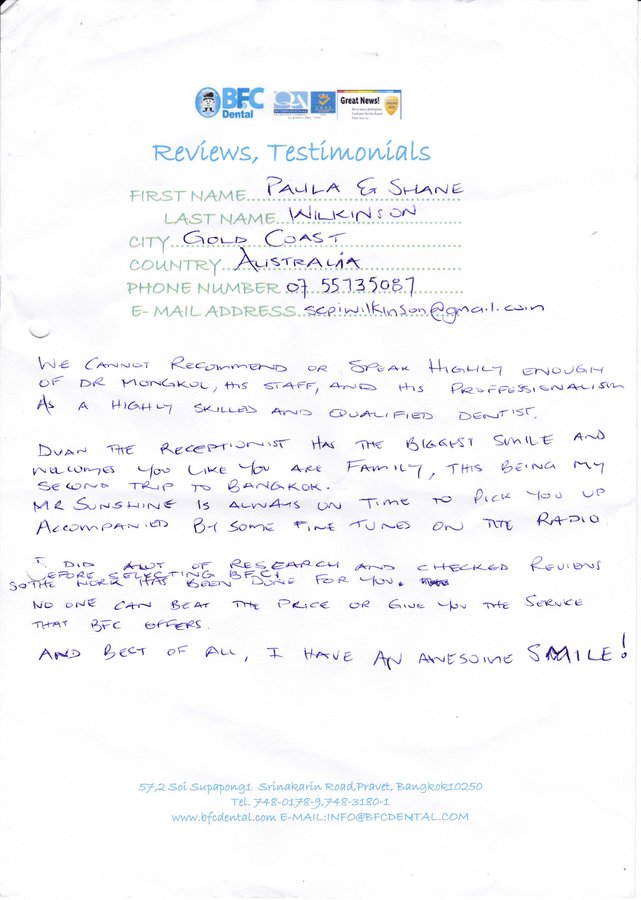 BFC
Dental
QA
Great News!
Reviews, Testimonials
FIRST NAME PAULA & SHANE
LAST NAME WILKINSON
CITY GOLD COAST
COUNTRY AUSTRALIA
PHONE NUMBER 07 55735087
E-MAIL ADDRESS scpiwilkinson@gmail.com
WE CANNOT RECOMMEND OR SPEAK HIGHLY ENOUGH
OF DR MONGKOL, HIS STAFF, AND HIS PROFFESSIONALISM
AS A HIGHLY SKILLED AND QUALIFIED DENTIST.
DUAN THE RECEPTIONIST HAS THE BIGGEST SMILE AND
WELCOMES YOU LIKE YOU ARE FAMILY, THIS BEING MY
SECOND TRIP TO BANGKOK.
MR SUNSHINE IS ALWAYS ON TIME TO PICK YOU UP
ACCOMPANIED BY SOME FINE TUNES ON THE RADIO
I DID ALOT OF RESEARCH AND CHECKED REVIEWS
BEFORE SELECTING BFC!
SO THE WORK HAS BEEN DONE FOR YOU.
NO ONE CAN BEAT THE PRICE OR GIVE YOU THE SERVICE
THAT BFC OFFERS.
AND BEST OF ALL, I HAVE AN AWESOME SMILE!
57,2 Soi Supapong1 Srinakarin Road,Pravet, Bangkok10250
Tel. 748-0178-9,748-3180-1
www.bfcdental.com E-MAIL:INFO@BFCDENTAL.COM